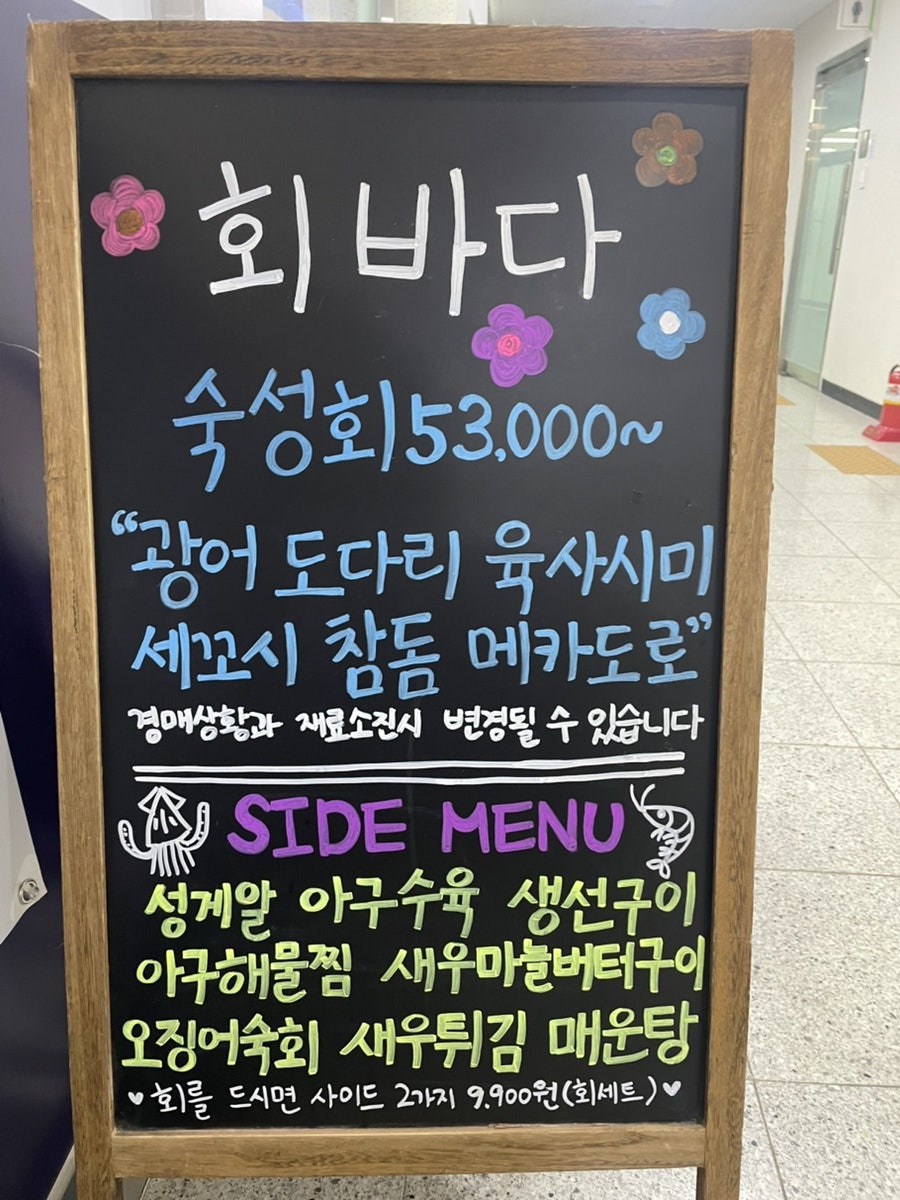 회 바다
숙성회 53,000~
“광어 도다리 육사시미
세꼬시 참돔 메카도로”
경매상황과 재료소진시 변경될 수 있습니다
SIDE MENU
성게알 아구수육 생선구이
아구해물찜 새우마늘버터구이
오징어숙회 새우튀김 매운탕
♥ 회를 드시면 사이드 2가지 9.900원(회세트) ♥